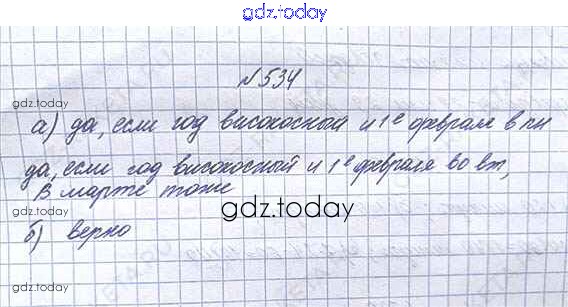 gdz.today
№534
gdz.today
а) да, если год високосный и 1е февраля в пн
gdz.today
да, если год високосный и 1е февраля во вт,
в марте тоже
gdz.today
б) верно
gdz.today